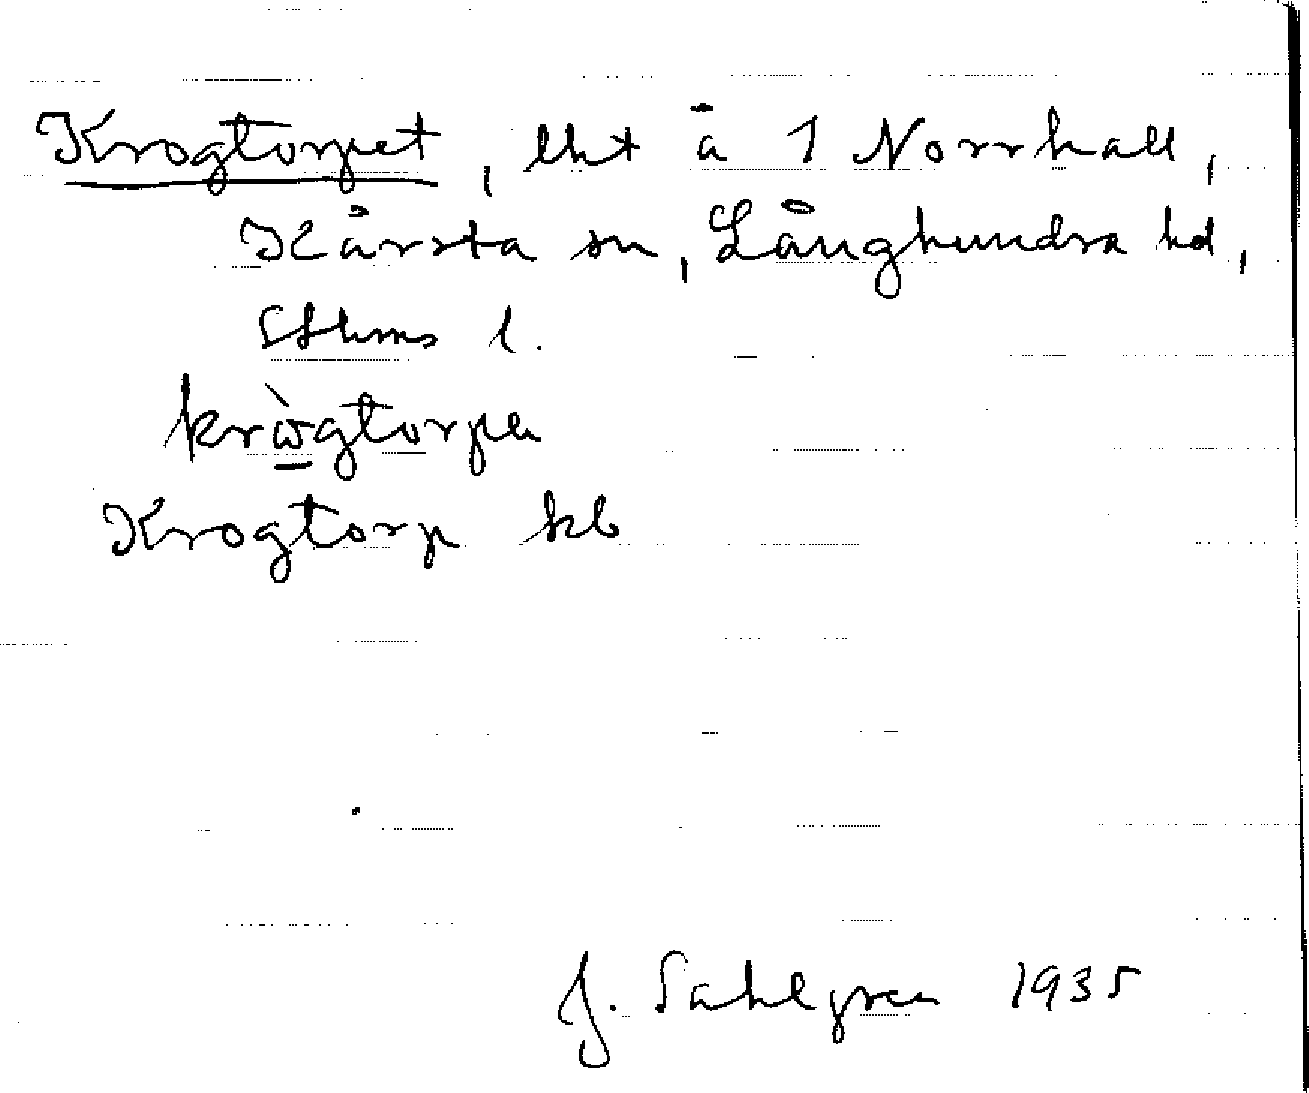 Krogtorpet, lht å 1 Norrhall,
Kårsta sn, Långhundra hd,
Sthms l.
krὼgtorpet
Krogtorp kb
J. Sahlgren 1935